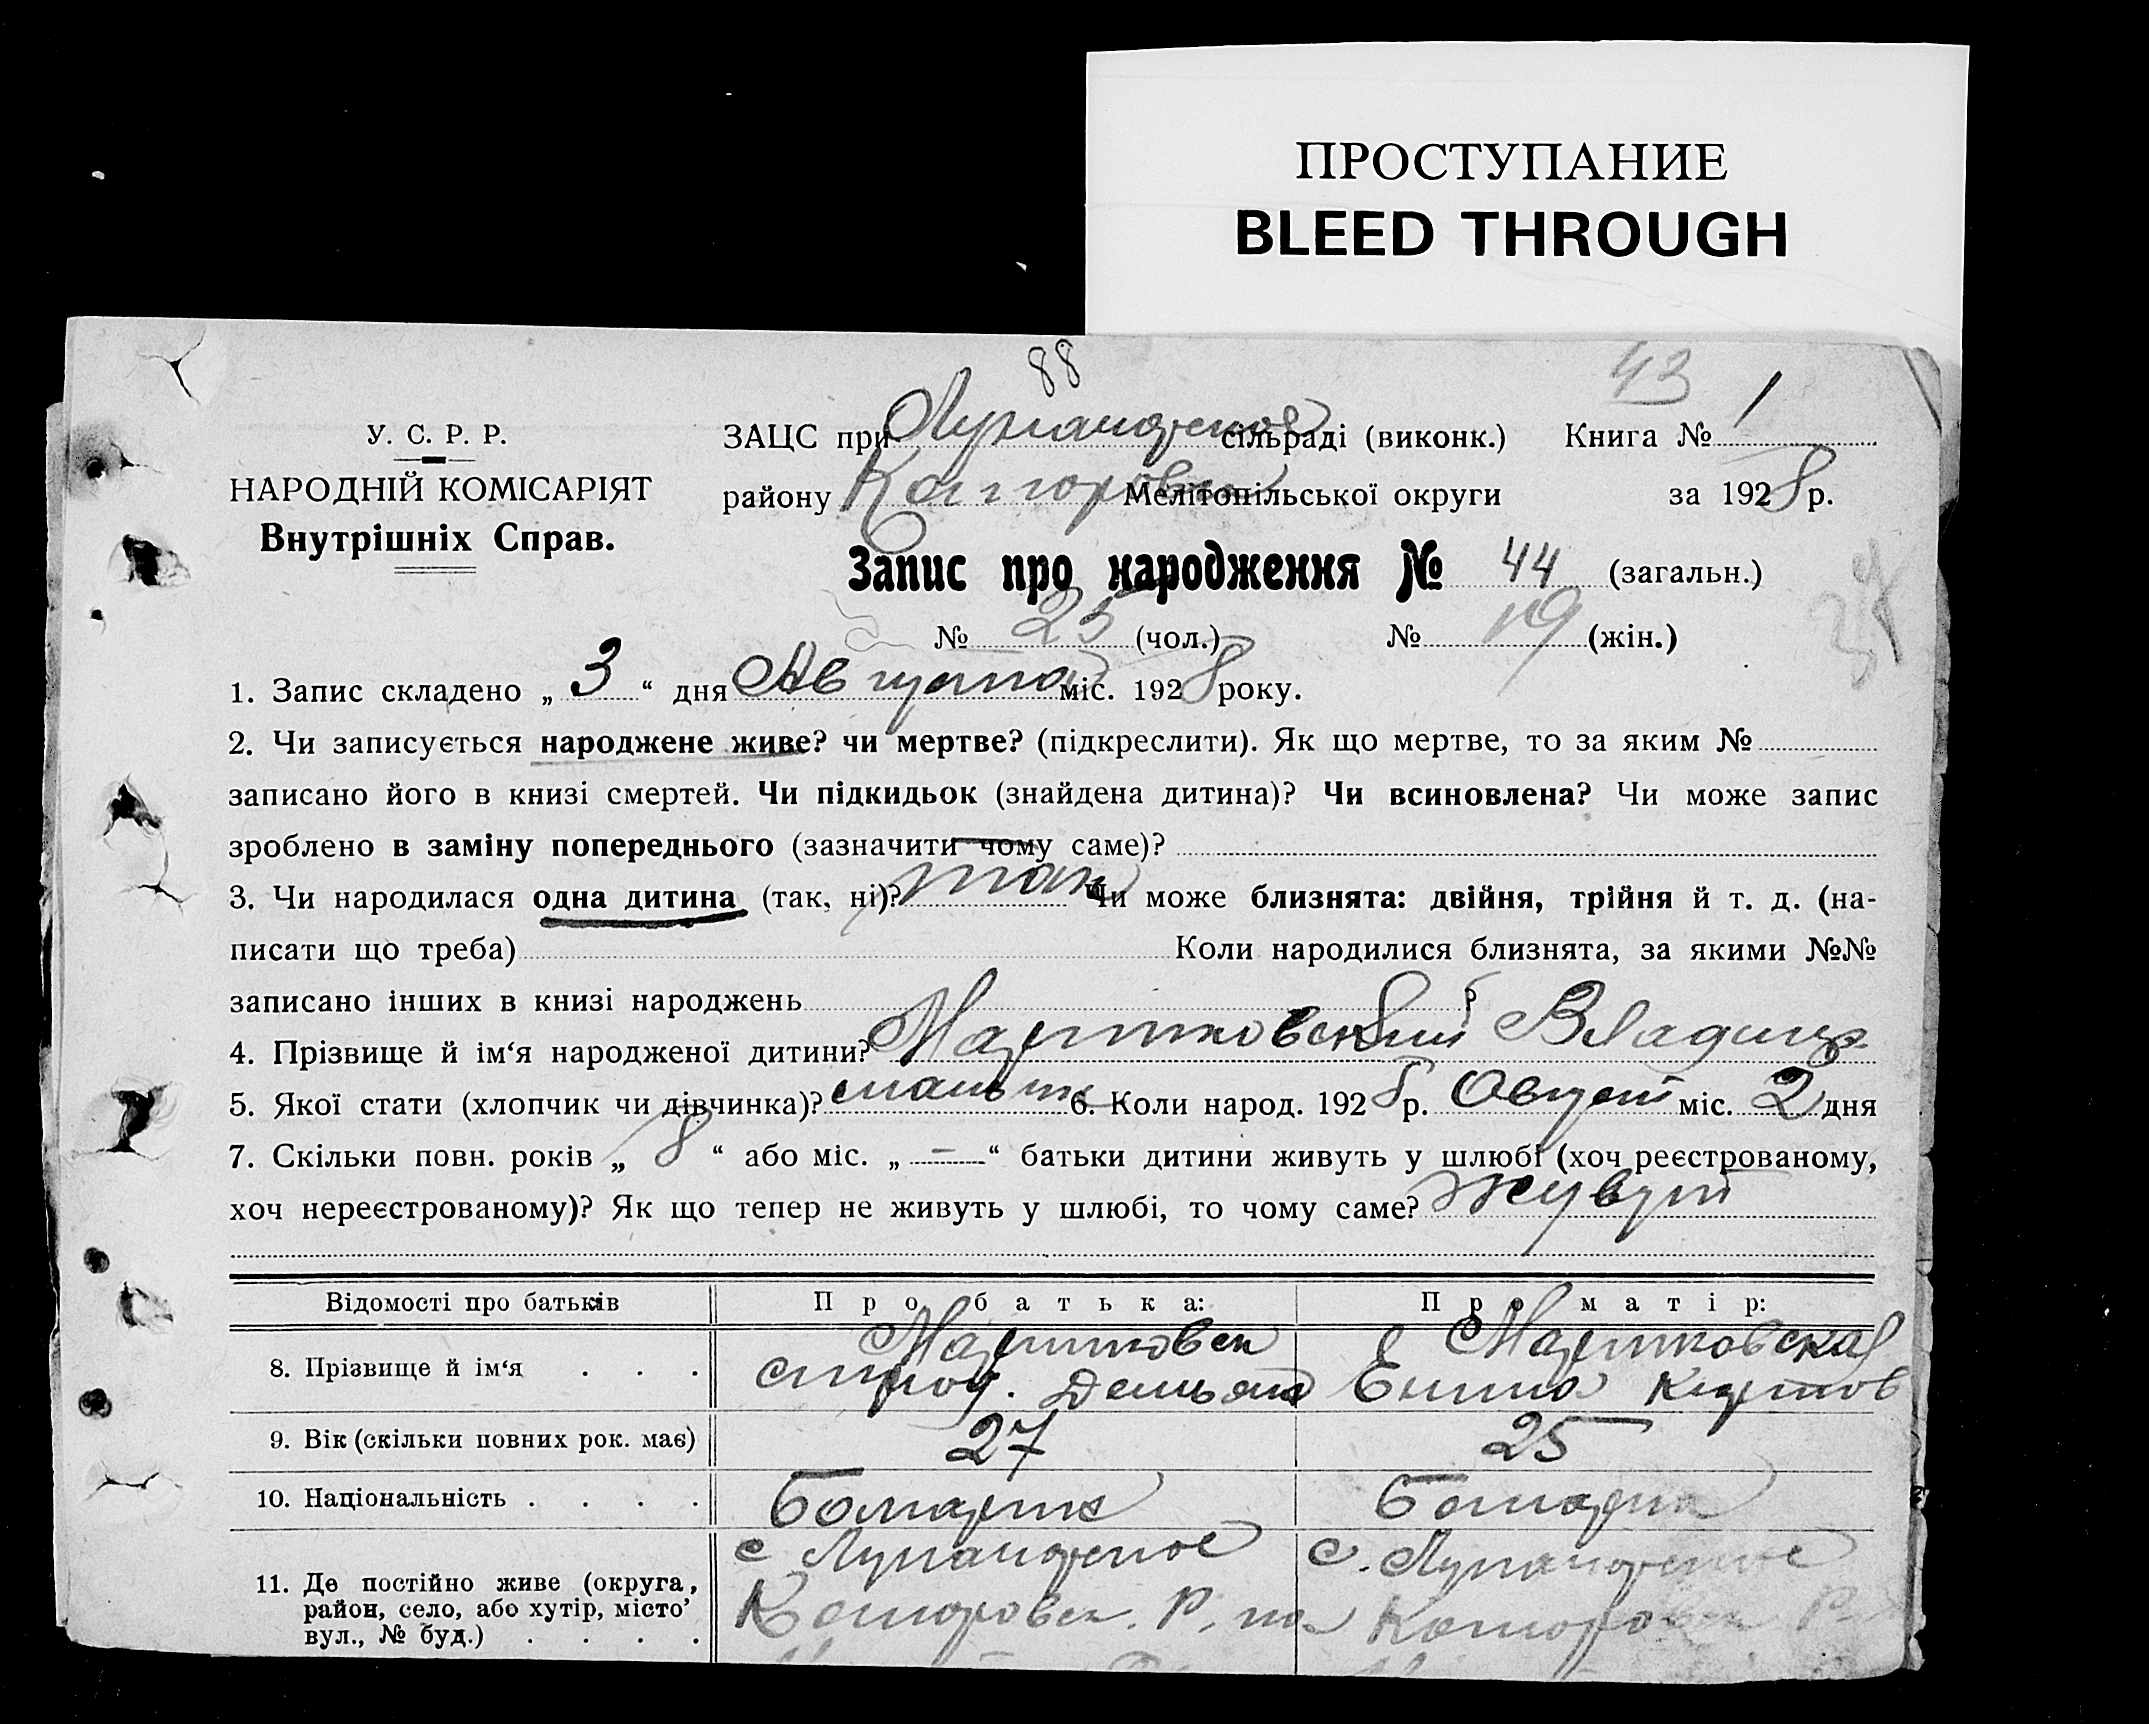 ПРОСТУПАНИЕ
BLEED THROUGH
88
43
У. С. Р. Р.
НАРОДНІЙ КОМІСАРІЯТ
Внутрішніх Справ.
ЗАЦС при сільраді (виконк.) Книга № 1
району Мелітопільської округи за 1928 р.
Запис про народження № 44 (загальн.)
№ 25 (чол.) № 19 (жін.)
1. Запис складено „ 3 “ дня Августа міс. 1928 року.
2. Чи записується народжене живе? чи мертве? (підкреслити). Як що мертве, то за яким №
записано його в книзі смертей. Чи підкидьок (знайдена дитина)? Чи всиновлена? Чи може запис
зроблено в заміну попереднього (зазначити чому саме)?
3. Чи народилася одна дитина (так, ні)? так Чи може близнята: двійня, трійня й т. д. (на-
писати що треба) Коли народилися близнята, за якими №№
записано інших в книзі народжень ?
4. Прізвище й ім‘я народженої дитини?
5. Якої стати (хлопчик чи дівчинка)? 6. Коли народ. 1928 р. Август міс. 2 дня
7. Скільки повн. років „ 8 “ або міс. „ — “ батьки дитини живуть у шлюбі (хоч реєстрованому,
хоч нереєстрованому)? Як що тепер не живуть у шлюбі, то чому саме? Живут
Відомості про батьків Про батька: Про матір:
8. Прізвище й ім‘я . . .
9. Вік (скільки повних рок. має) 27 25
10. Національність . . . .
11. Де постійно живе (округа,
район, село, або хутір, місто
вул., № буд.) . . . .